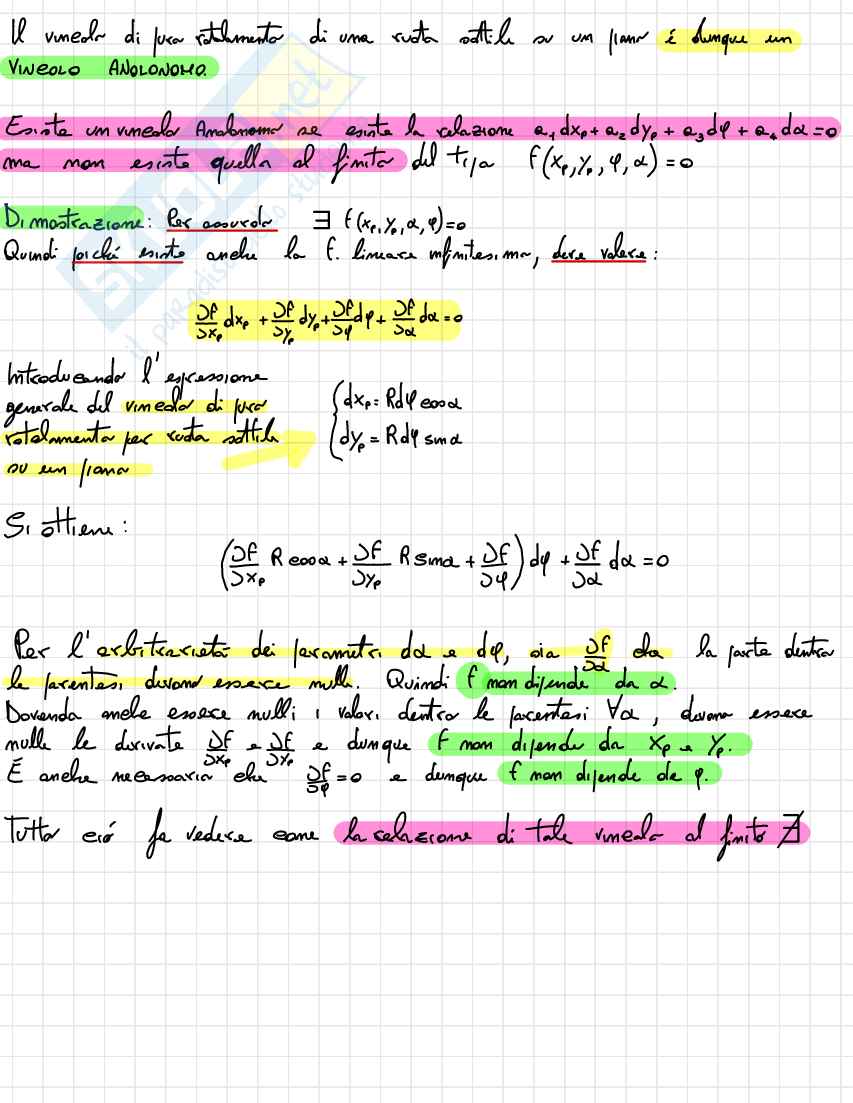 Il vincolo di puro rotolamento di una ruota sottile su un piano è dunque un
VINCOLO ANOLONOMO.
Esiste un vincolo Anolonomo se esiste la relazione a₁dxₚ + a₂dyₚ + a₃dφ + a₄dα = 0
ma non esiste quella al finito del tipo f(xₚ, yₚ, φ, α) = 0
Dimostrazione: Per assurdo ∃ f(xₚ, yₚ, α, φ) = 0
Quindi poiché esiste anche la f. lineare infinitesima, deve valere:
∂f/∂xₚ dxₚ + ∂f/∂yₚ dyₚ + ∂f/∂φ dφ + ∂f/∂α dα = 0
Introducendo l'espressione
generale del vincolo di puro
rotolamento per ruota sottile
su un piano
{ dxₚ = Rdφ cosα
dyₚ = Rdφ sinα
Si ottiene:
(∂f/∂xₚ R cosα + ∂f/∂yₚ R sinα + ∂f/∂φ) dφ + ∂f/∂α dα = 0
Per l'arbitrarietà dei parametri dα e dφ, sia ∂f/∂α che la parte dentro
le parentesi devono essere nulli. Quindi f non dipende da α.
Dovendo anche essere nulli i valori dentro le parentesi ∀α, devono essere
nulle le derivate ∂f/∂xₚ e ∂f/∂yₚ e dunque f non dipende da xₚ e yₚ.
È anche necessario che ∂f/∂φ = 0 e dunque f non dipende da φ.
Tutto ciò fa vedere come la relazione di tale vincolo al finito ∄
il paradiso
net